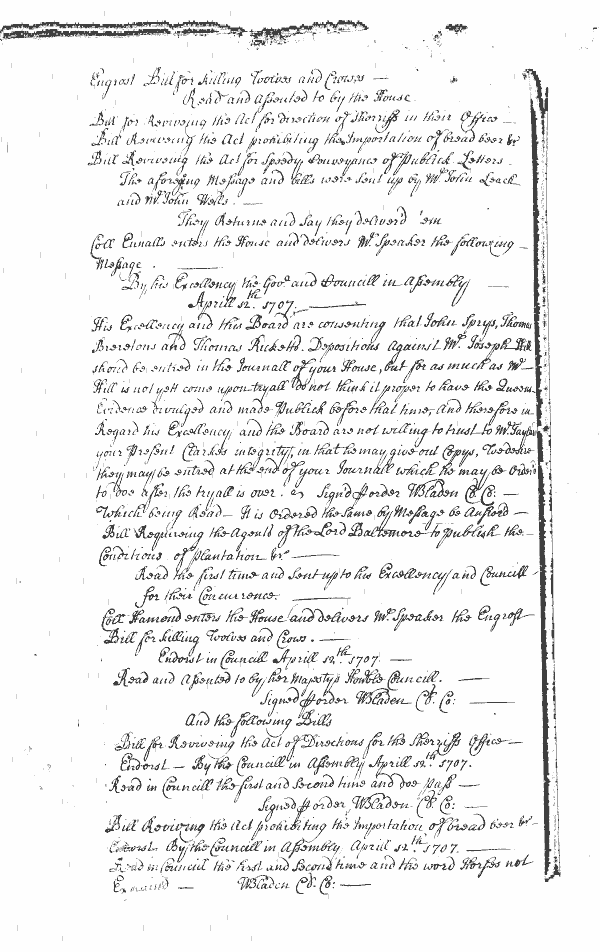 Engrost Bill for killing Wolves and Crowes —
Read and Assented to by the House
Bill for Reviveing the Act for Direction of Sherriffs in their Office —
Bill Reviveing the Act prohibiting the Importation of bread beer &c
Bill Reviveing the Act for Speedy Conveyance of Publick Letters
The aforegoing Message and bills were sent up by Mr. John Leach
and Mr. John Wells. —
They Returne and say they deliverd 'em
Coll Ennalls enters the House and delivers Mr. Speaker the following —
Message. —
By his Excellency the Govr. and Councill in Assembly —
Aprill 12th. 1707. —
His Excellency and this Board are consenting that John Sprys, Thomas
Breretons and Thomas Ricketts Depositions Against Mr. Joseph Hill
should be entred in the Journall of your House, but for as much as Mr. —
Hill is not yett come upon tryall do not think it proper to have the Queens
Evidence divulged and made Publick before that time, And therefore in
Regard his Excellency and the Board are not willing to trust to Mr.
your Present Clarkes integrity, in that he may give out Copys, We desire
they may be entred at the end of your Journall which he may be Orderd
to doe after the tryall is over. Signd p order WBladen Cl. Co: —
Which being Read — It is Ordered the same by Message be Answd —
Bill Requireing the Agents of the Lord Baltemore to publish the —
Conditions of plantation &c —
Read the first time and Sent up to his Excellency and Councill
for their Concurrence. —
Coll Hamond enters the House and delivers Mr. Speaker the Engrost
Bill for killing Wolves and Crows. —
Endorst in Councill Aprill 12th. 1707. —
Read and Assented to by her Majestys Honble Councill. —
Signed p order WBladen Cl. Co: —
And the following Bills
Bill for Reviveing the Act of Directions for the Sherriffs Office —
Endorst — By the Councill in Assembly Aprill 12th 1707.
Read in Councill the first and Second time and doe pass —
Signed p order WBladen Cl. Co: —
Bill Reviving the Act prohibiting the Importation of bread beer &c —
Endorst By the Councill in Assembly Aprill 12th 1707. —
Read in Councill the first and Second time and the word Horses not
— WBladen Cl. Co: —